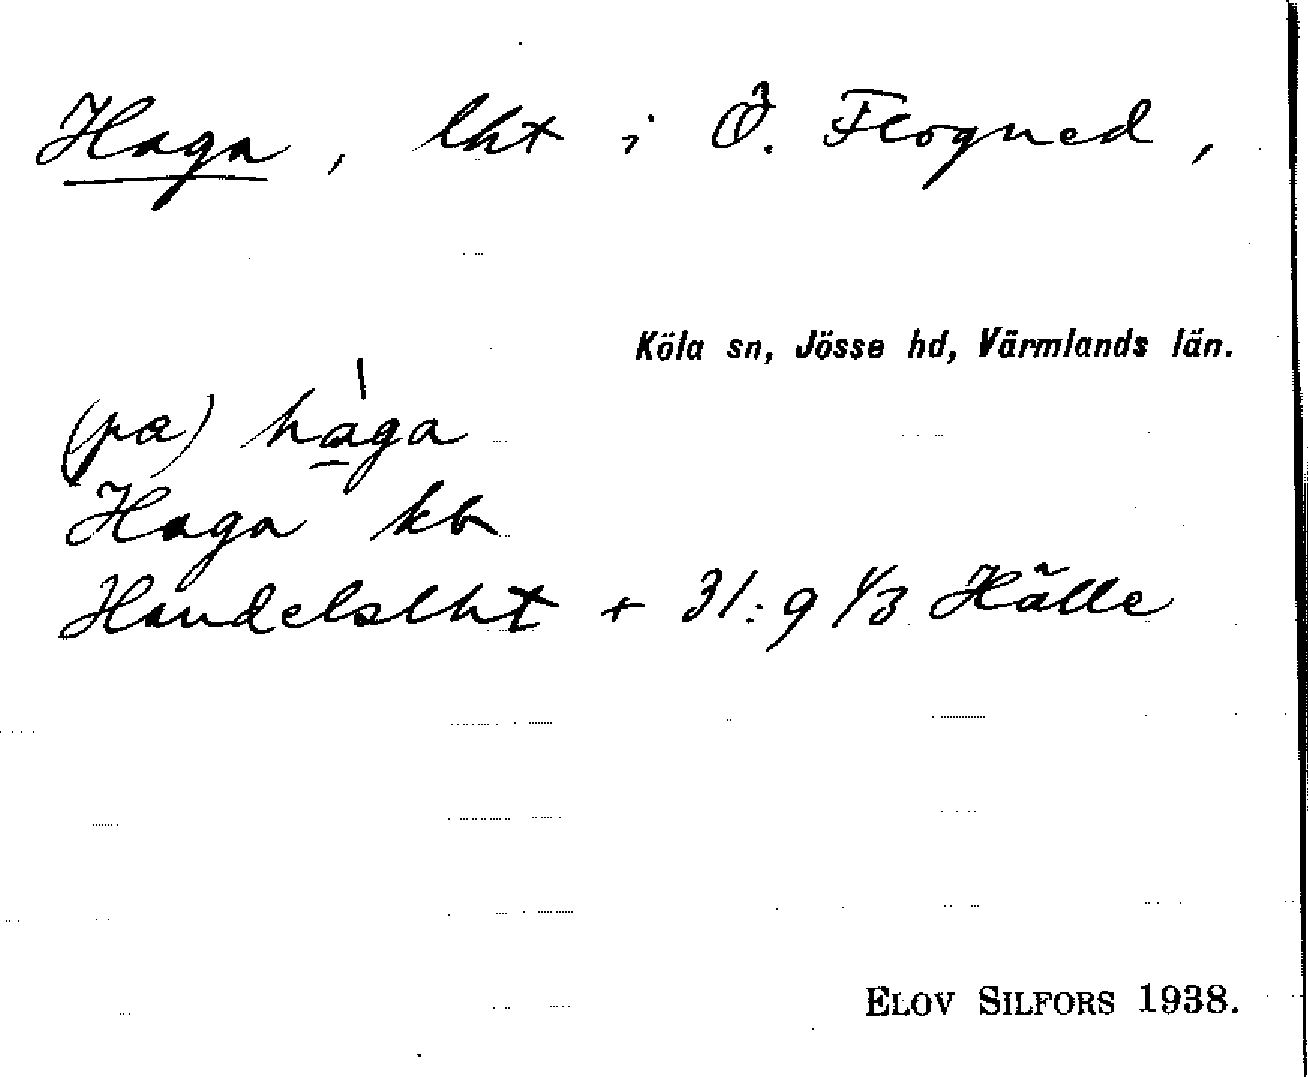 Haga, lht i Ö. Flogned,
Köla sn, Jösse hd, Värmlands län.
(pa) hàga
Haga kb
Handelslht + 31:9 1/3 Hälle
ELOV SILFORS 1938.